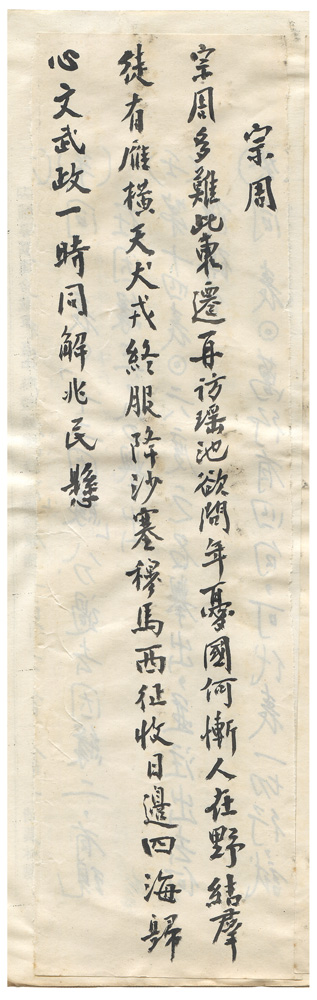 宗周
宗周多難此東遷再訪瑤池欲問年憂國何慚人在野結羣
徒有雁橫天犬戎終服降沙塞穆馬西征收日邊四海歸
心文武政一時同解兆民懸